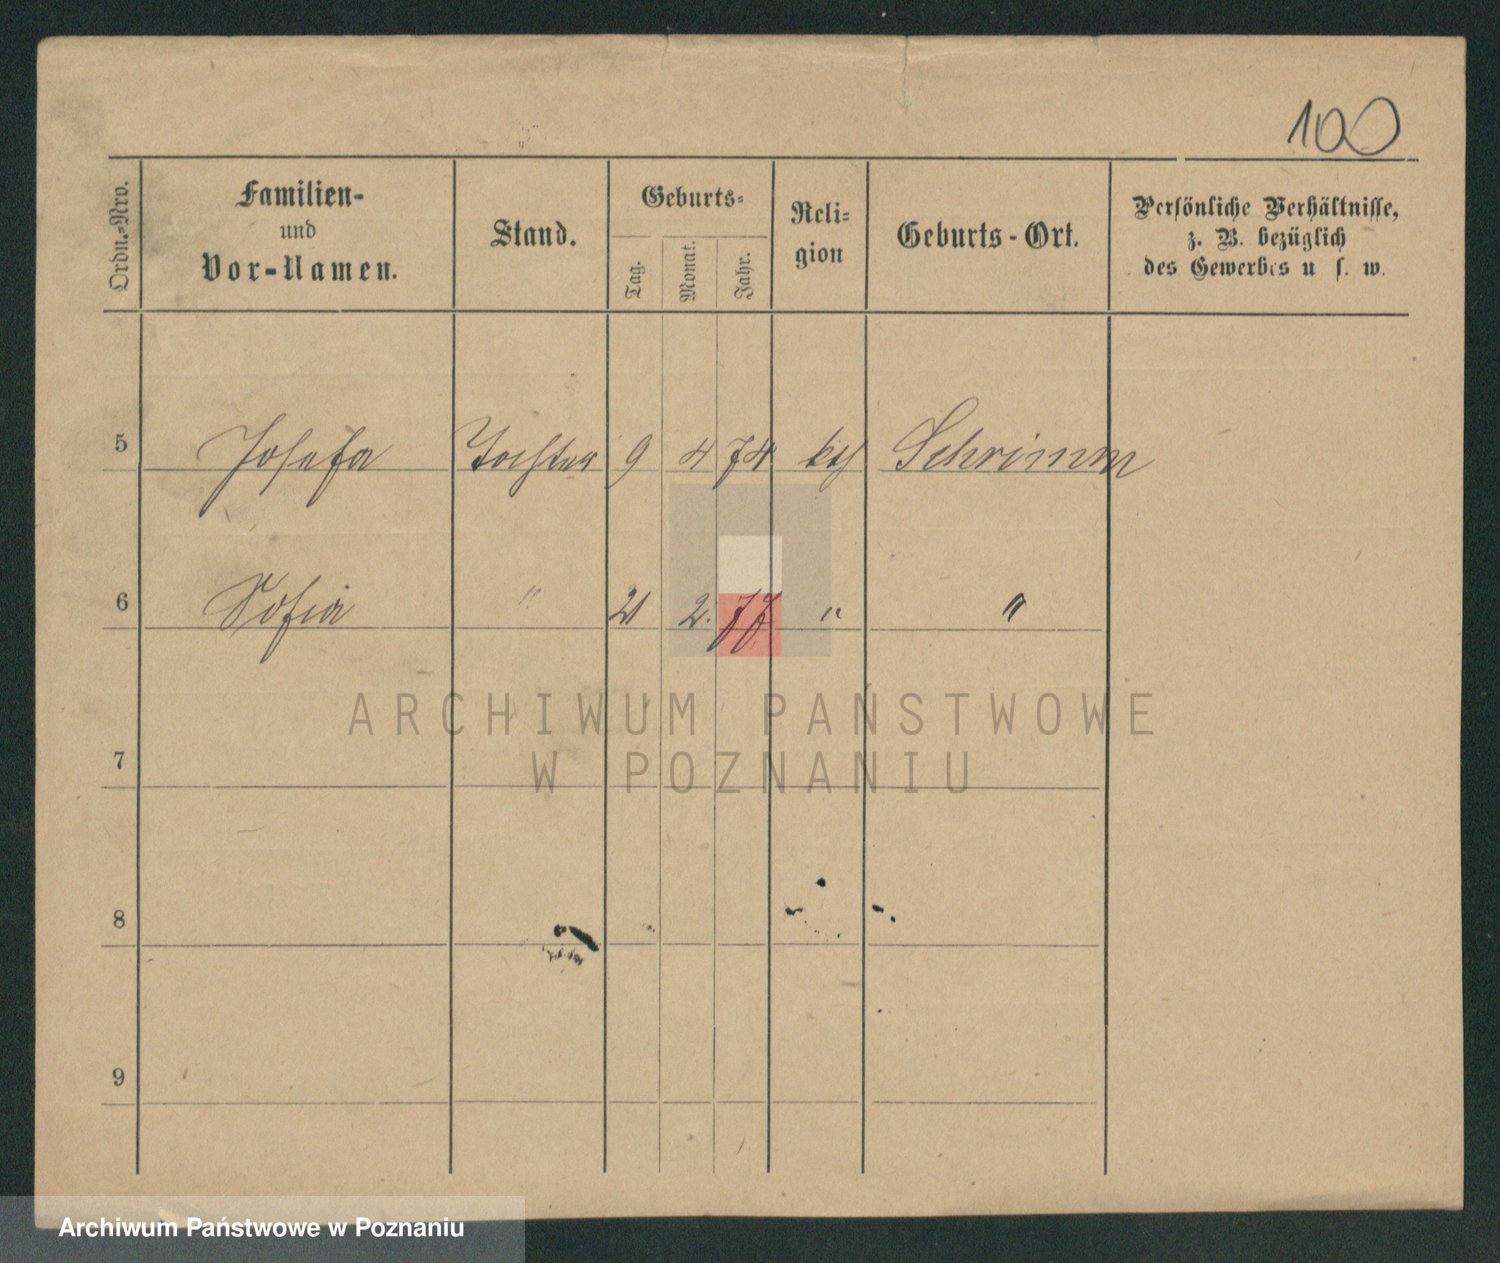 100
Ordn.-Nro.
Familien-
und
Vor-Namen.
Stand.
Geburts-
Tag.
Monat.
Jahr.
Reli-
gion
Geburts-Ort.
Persönliche Verhältnisse,
z. B. bezüglich
des Gewerbes u s. w.
5 Josefa Tochter 9 4 74 kath Schrimm
6 Sofia " 21 2. 77 " "
7
8
9
ARCHIWUM PAŃSTWOWE
W POZNANIU
Archiwum Państwowe w Poznaniu